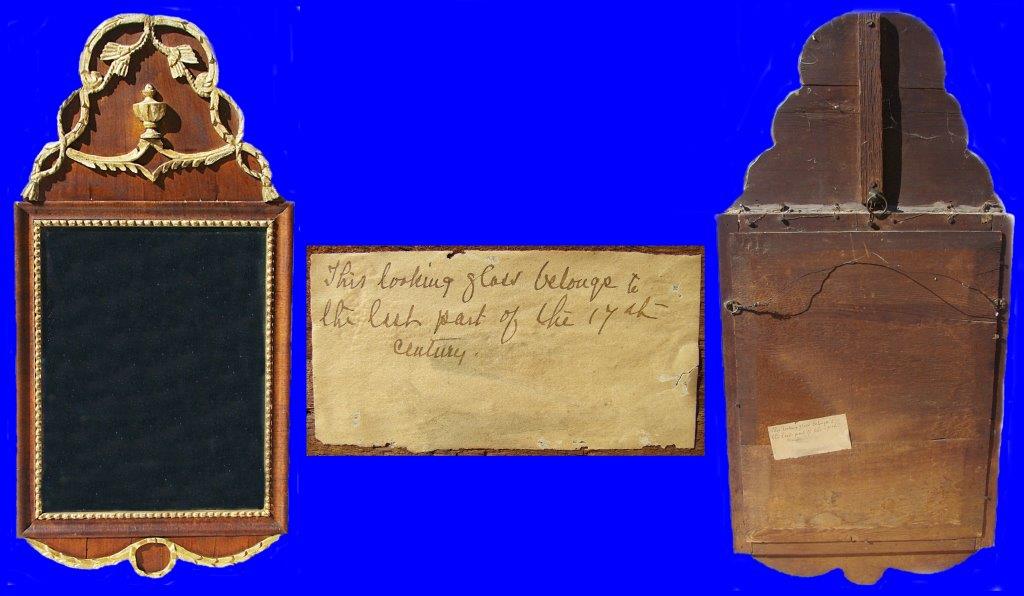 This looking glass belongs to
the last part of the 17th
century.